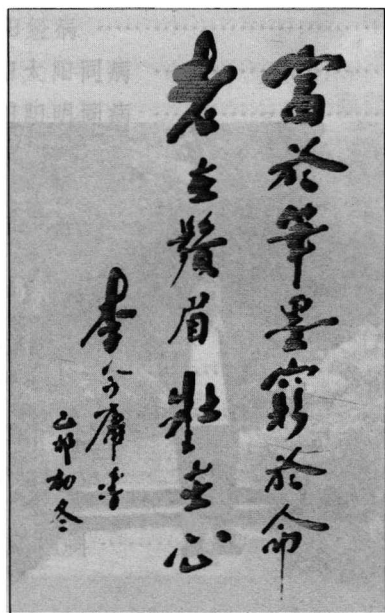 富於筆墨窮於命
老在鬚眉壯在心
李今庸書
己卯初冬